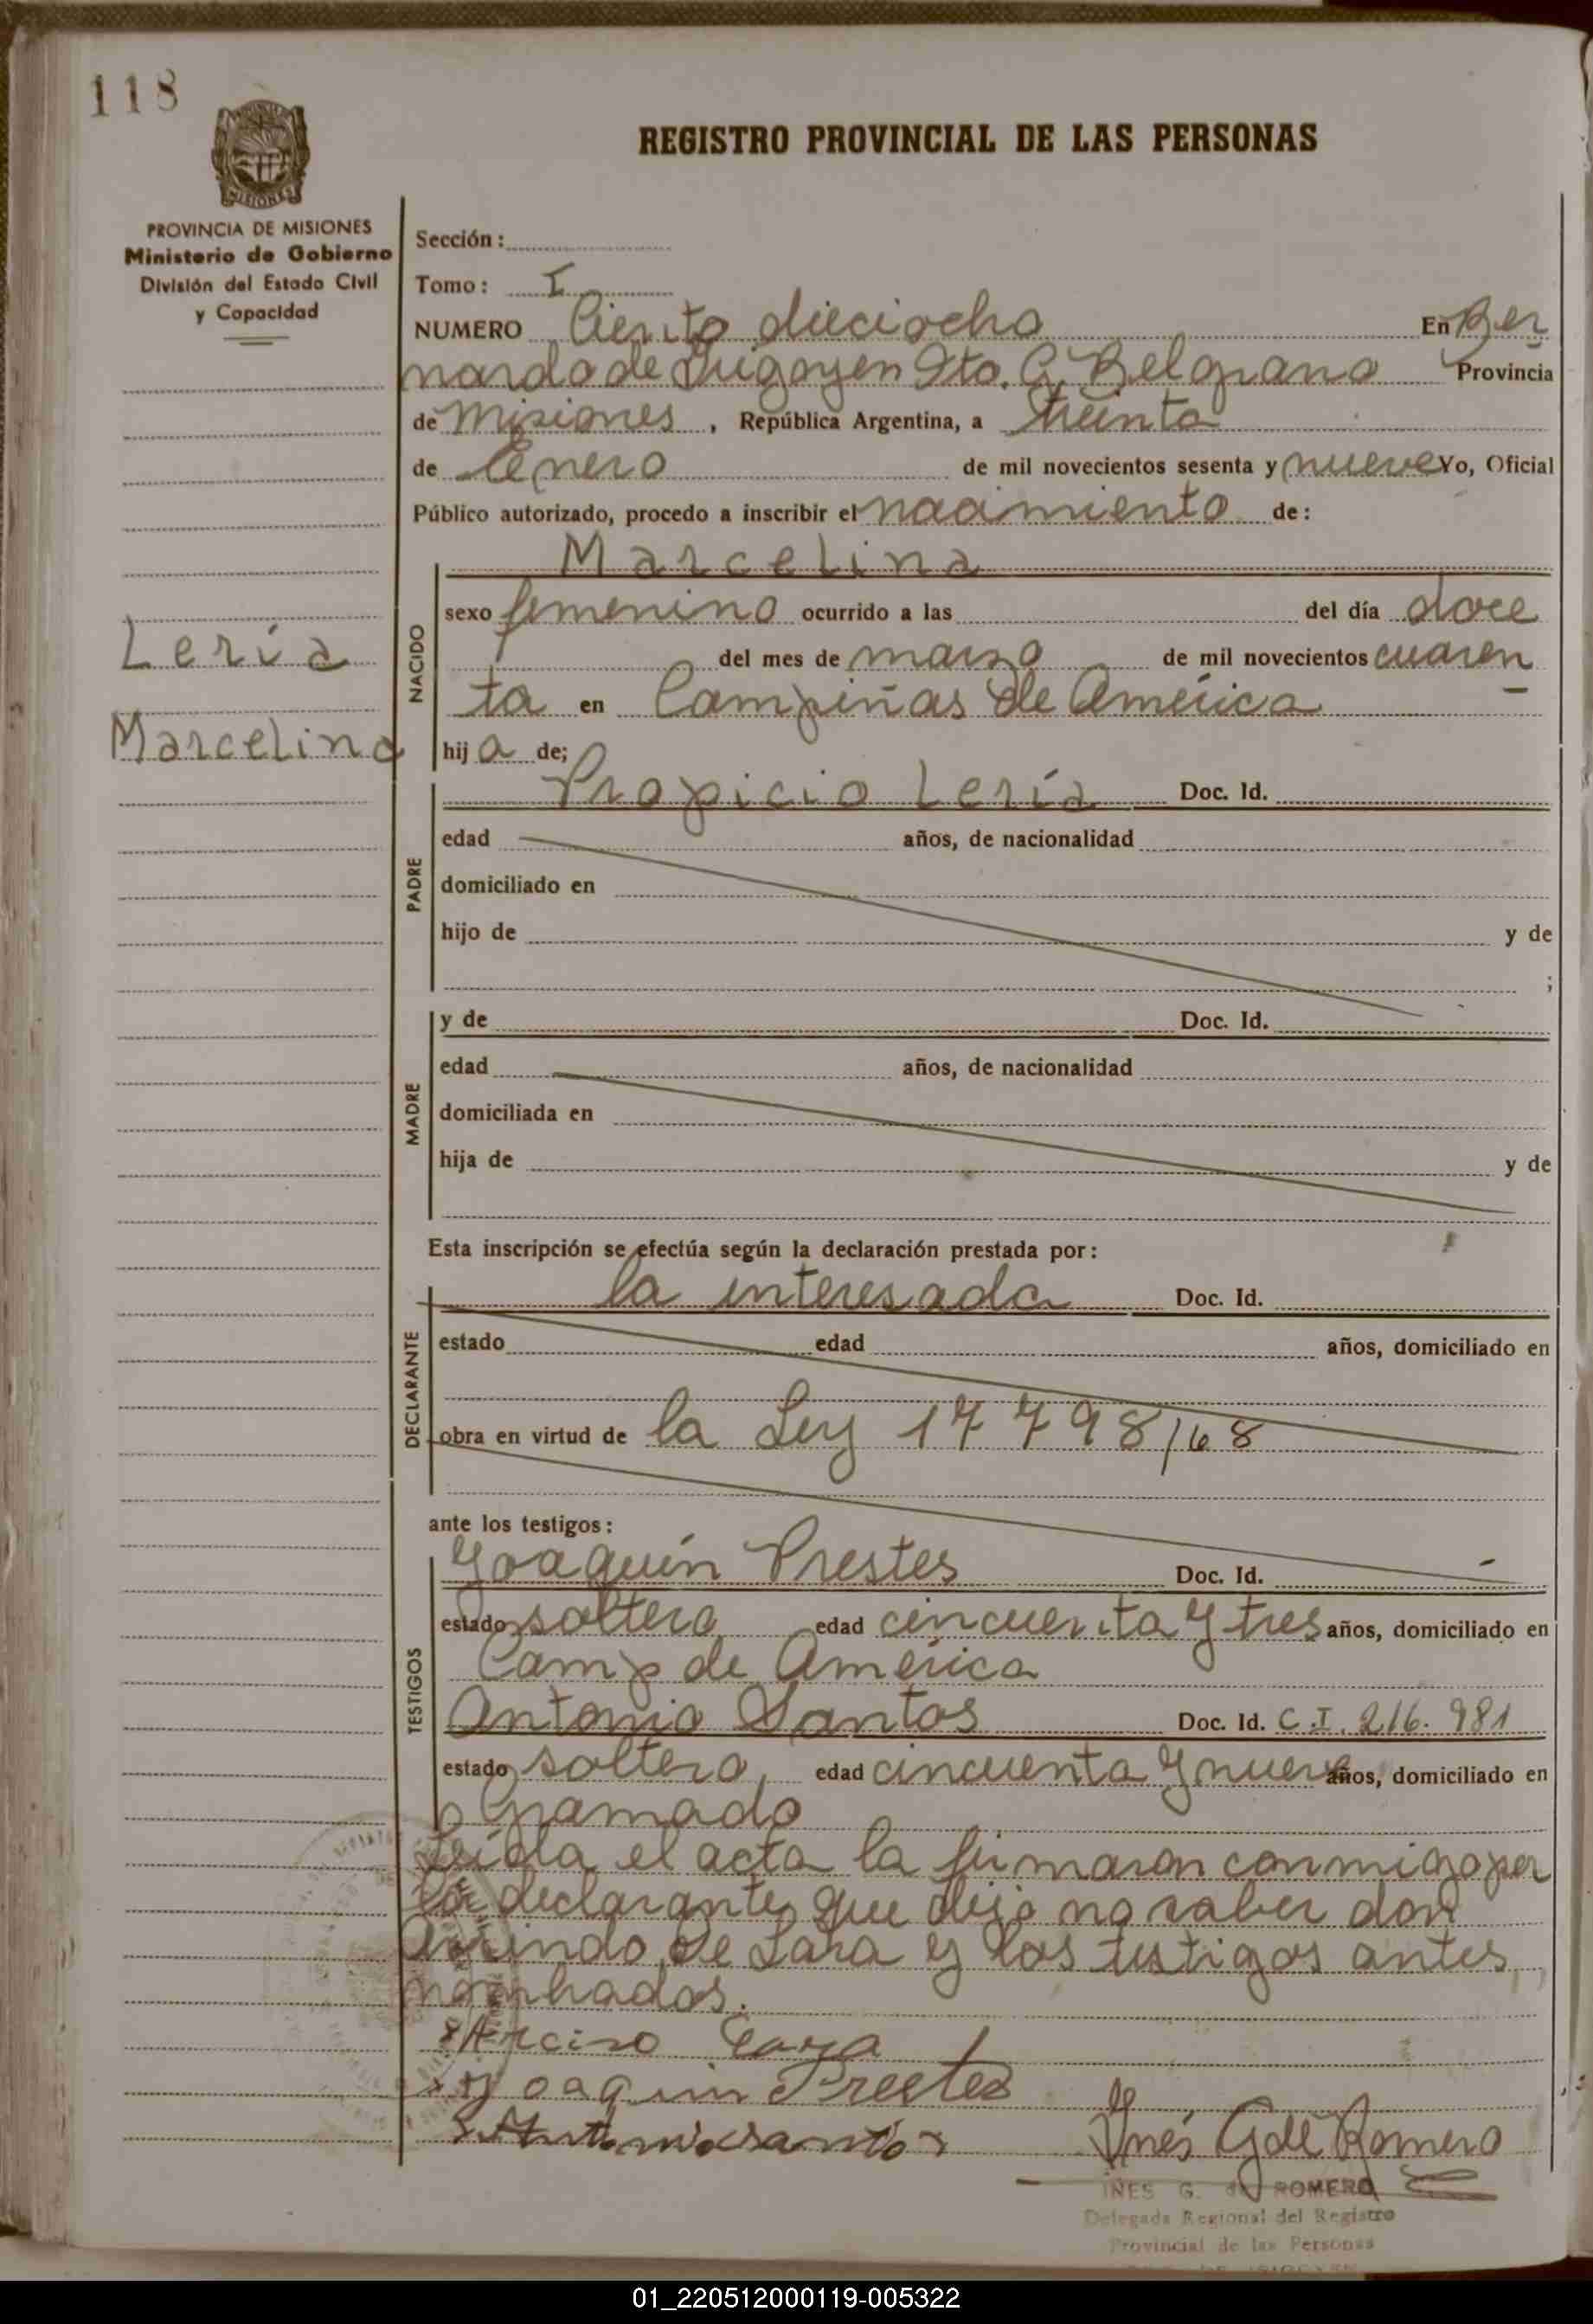 118
REGISTRO PROVINCIAL DE LAS PERSONAS
PROVINCIA DE MISIONES
Ministerio de Gobierno
División del Estado Civil
y Capacidad
Sección:
Tomo: I
NUMERO Ciento dieciocho En Ber
nardo de Irigoyen Dto. G. Belgrano Provincia
de Misiones, República Argentina, a treinta
de Enero de mil novecientos sesenta y nueve Yo, Oficial
Público autorizado, procedo a inscribir el nacimiento de:
Marcelina
NACIDO
sexo femenino ocurrido a las del día doce
del mes de marzo de mil novecientos cuaren
ta en Campiñas de América
hija de;
Lería
Marcelina
PADRE
Propicio Lería Doc. Id.
edad años, de nacionalidad
domiciliado en
hijo de y de
;
MADRE
y de Doc. Id.
edad años, de nacionalidad
domiciliada en
hija de y de
Esta inscripción se efectúa según la declaración prestada por:
DECLARANTE
la interesada Doc. Id.
estado edad años, domiciliado en
obra en virtud de la Ley 17798/68
ante los testigos:
TESTIGOS
Joaquín Prestes Doc. Id.
estado soltero edad cincuenta y tres años, domiciliado en
Camp de América
Antonio Santos Doc. Id. C.I. 216.981
estado soltero, edad cincuenta y nueve años, domiciliado en
Gramado
Leída el acta la firmaron conmigo por
la declarante que dijo no saber don
de Lara y los testigos antes
nombrados.
Lara
Joaquim Prestes
Antonio Santos
Inés G de Romero
INES G. de ROMERO
Delegada Regional del Registro
Provincial de las Personas
01_220512000119-005322